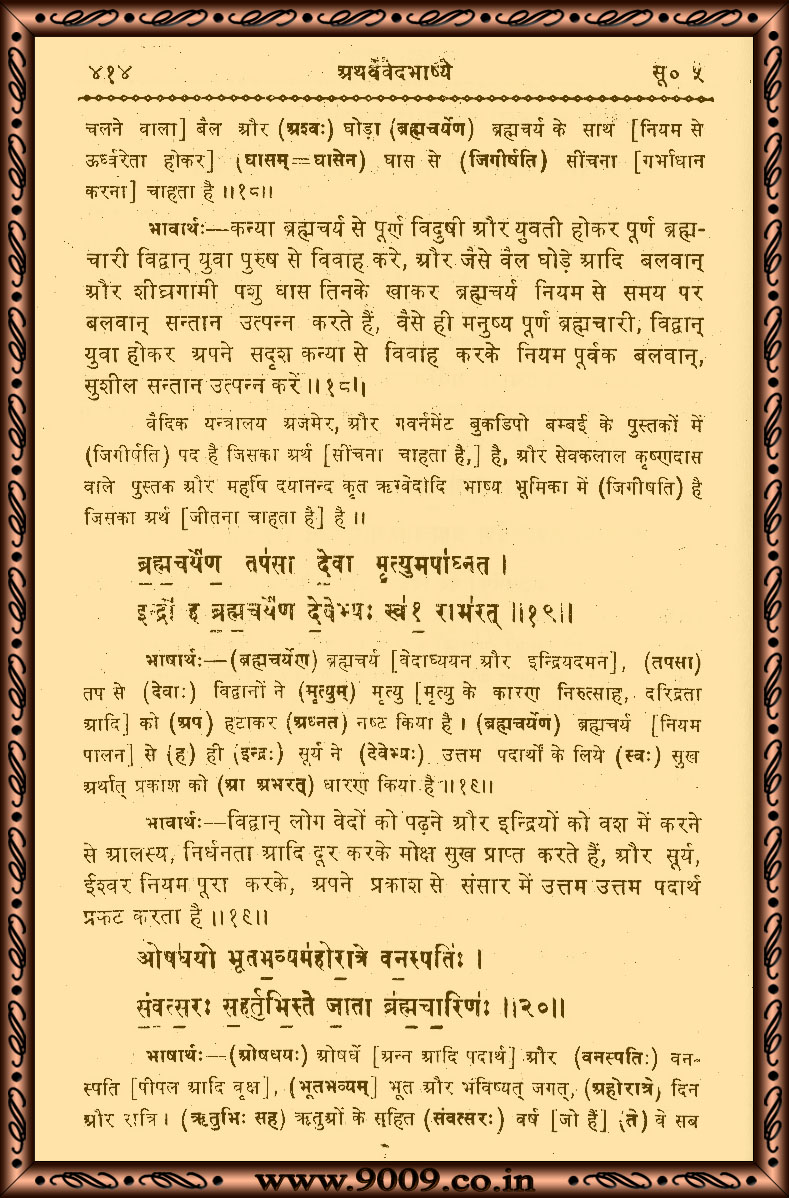 ४१४ अथर्ववेदभाष्ये सू० ५
चलने वाला] बैल और (अश्वः) घोड़ा (ब्रह्मचर्येण) ब्रह्मचर्य के साथ [नियम से
ऊर्ध्वरेता होकर] (घासम्=घासेन) घास से (जिगीर्षति) सींचना [गर्भाधान
करना] चाहता है ॥१८॥
भावार्थः—कन्या ब्रह्मचर्य से पूर्ण विदुषी और युवती होकर पूर्ण ब्रह्म-
चारी विद्वान् युवा पुरुष से विवाह करे, और जैसे बैल घोड़े आदि बलवान्
और शीघ्रगामी पशु घास तिनके खाकर ब्रह्मचर्य नियम से समय पर
बलवान् सन्तान उत्पन्न करते हैं, वैसे ही मनुष्य पूर्ण ब्रह्मचारी, विद्वान्
युवा होकर अपने सदृश कन्या से विवाह करके नियम पूर्वक बलवान्,
सुशील सन्तान उत्पन्न करें ॥१८॥
वैदिक यन्त्रालय अजमेर, और गवर्नमेंट बुकडिपो बम्बई के पुस्तकों में
(जिगीर्षति) पद है जिसका अर्थ [सींचना चाहता है,] है, और सेवकलाल कृष्णदास
वाले पुस्तक और महर्षि दयानन्द कृत ऋग्वेदादि भाष्य भूमिका में (जिगीषति) है
जिसका अर्थ [जीतना चाहता है] है ॥
ब्र॒ह्म॒चर्ये॑ण॒ तप॑सा दे॒वा मृ॒त्युमपा॑घ्नत ।
इन्द्रो॑ ह ब्रह्म॒चर्ये॑ण दे॒वेभ्यः॒ स्व॑१॒ राभ॑रत् ॥१९॥
भाषार्थः—(ब्रह्मचर्येण) ब्रह्मचर्य [वेदाध्ययन और इन्द्रियदमन], (तपसा)
तप से (देवाः) विद्वानों ने (मृत्युम्) मृत्यु [मृत्यु के कारण निरुत्साह, दरिद्रता
आदि] को (अप) हटाकर (अघ्नत) नष्ट किया है । (ब्रह्मचर्येण) ब्रह्मचर्य [नियम
पालन] से (ह) ही (इन्द्रः) सूर्य ने (देवेभ्यः) उत्तम पदार्थों के लिये (स्वः) सुख
अर्थात् प्रकाश को (आ अभरत्) धारण किया है ॥१९॥
भावार्थः—विद्वान् लोग वेदों को पढ़ने और इन्द्रियों को वश में करने
से आलस्य, निर्धनता आदि दूर करके मोक्ष सुख प्राप्त करते हैं, और सूर्य,
ईश्वर नियम पूरा करके, अपने प्रकाश से संसार में उत्तम उत्तम पदार्थ
प्रकट करता है ॥१९॥
ओष॑धयो भूतभ॒व्यम॑होरा॒त्रे वन॒स्पतिः॑ ।
सं॒व॒त्स॒रः स॒हर्तुभि॒स्ते जा॒ता ब्र॑ह्मचा॒रिणः॑ ॥२०॥
भाषार्थः—(ओषधयः) ओषधें [अन्न आदि पदार्थ] और (वनस्पतिः) वन-
स्पति [पीपल आदि वृक्ष], (भूतभव्यम्] भूत और भविष्यत् जगत्, (अहोरात्रे) दिन
और रात्रि । (ऋतुभिः सह) ऋतुओं के सहित (संवत्सरः) वर्ष [जो हैं] (ते) वे सब
www.9009.co.in